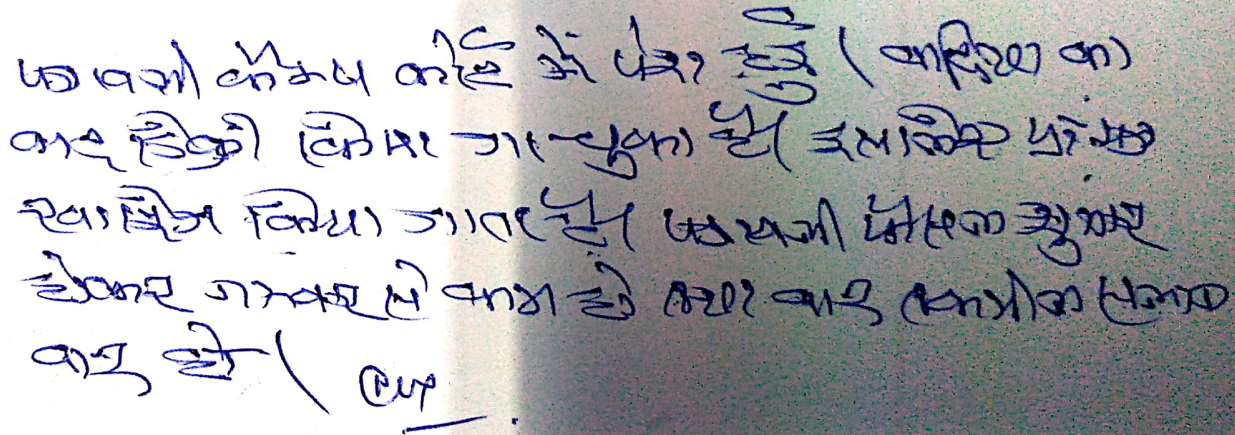 पत्रावली कैम्प कोर्ट में पेश हुई। वादिया का
वाद डिक्री किया जा चुका है। इसलिए प्रा.पत्र
खारिज किया जाता है। पत्रावली फैसल शुमार
होकर नम्बर से कम हो तथा बाद तकमील संलग्न
वाद हो।